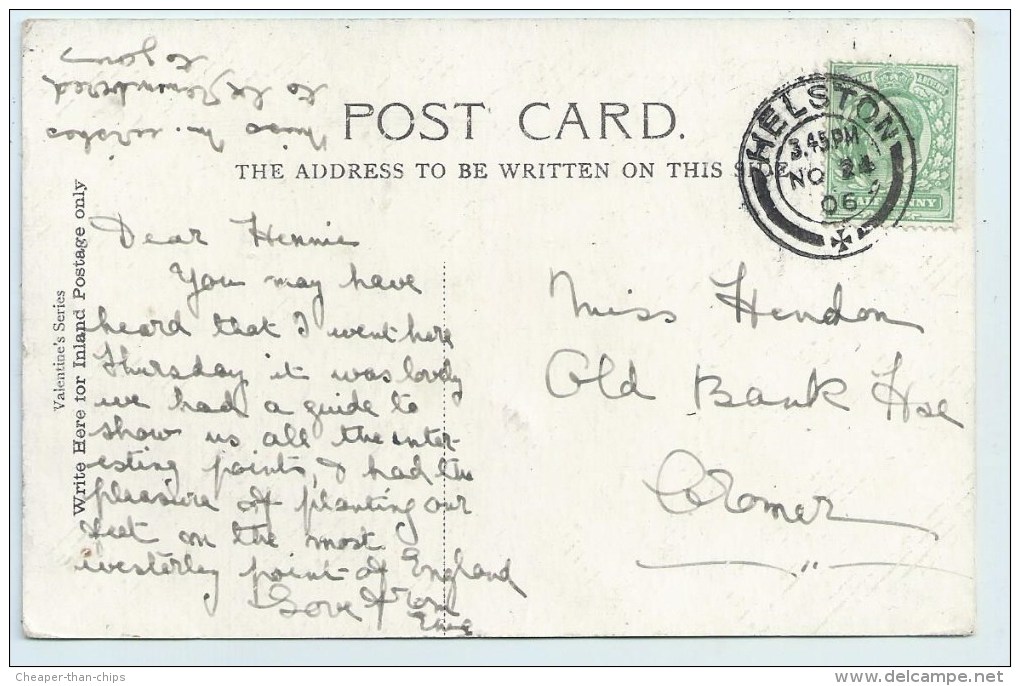 Miss M. wishes
to be remembered
to you
POST CARD.
THE ADDRESS TO BE WRITTEN ON THIS SIDE.
HELSTON
3.45PM
NO 24
06
HALFPENNY
Valentine's Series
Write Here for Inland Postage only
Dear Hennie
You may have
heard that I went here
Thursday it was lovely
we had a guide to
show us all the inter-
esting points, & had the
pleasure of planting our
feet on the most
westerley point of England
Love from
Miss Hendon
Old Bank Hse
Cromer
Cheaper-than-chips
delcampe.net